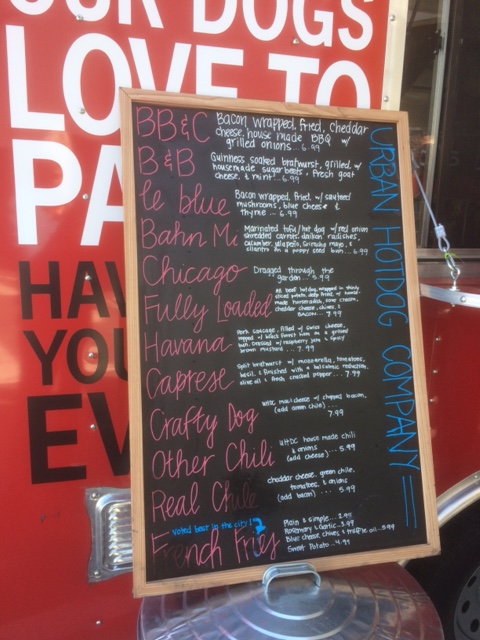 OUR DOGS
LOVE TO
PA
HAV
YOU
EV
URBAN HOTDOG COMPANY
BB&C
Bacon wrapped, fried, cheddar
cheese, house made BBQ w/
grilled onions... 6.99
B&B
Guinness soaked bratwurst, grilled, w/
housemade sugar beets, fresh goat
cheese, & mint... 6.99
le blue
Bacon wrapped, fried, w/ sauteed
mushrooms, blue cheese &
thyme ... 6.99
Bahn Mi
Marinated tofu/hot dog w/ red onion
shredded carrots, daikon radishes,
cucumber, jalapeño, Sriracha mayo, &
cilantro on a poppy seed bun... 6.99
Chicago
Dragged through the
garden ... 5.99
Fully Loaded
beef hotdog, wrapped in thinly
sliced potato, deep fried, w/ house-
made horseradish, sour cream,
cheddar cheese, chives, &
BACON ... 7.99
Havana
Pork sausage, filled w/ swiss cheese,
topped w/ black forest ham on a grilled
bun, dressed w/ raspberry jam & spicy
brown mustard ... 7.99
Caprese
Split bratwurst w/ mozzarella, tomatoes,
basil, & finished w/ a balsamic reduction,
olive oil & fresh cracked pepper ... 7.99
Crafty Dog
UHDC mac & cheese w/ chopped bacon,
(add green chile) ...
7.99
Other Chili
UHDC house made chili
& onions
(add cheese) ... 5.99
Real Chile
cheddar cheese, green chile,
tomatoes, & onions
(add bacon) .... 5.99
voted best in the city!
French Fries
Plain & simple... 2.99
Rosemary & Garlic...3.99
Blue cheese, chives, & truffle oil...3.99
Sweet Potato...4.99